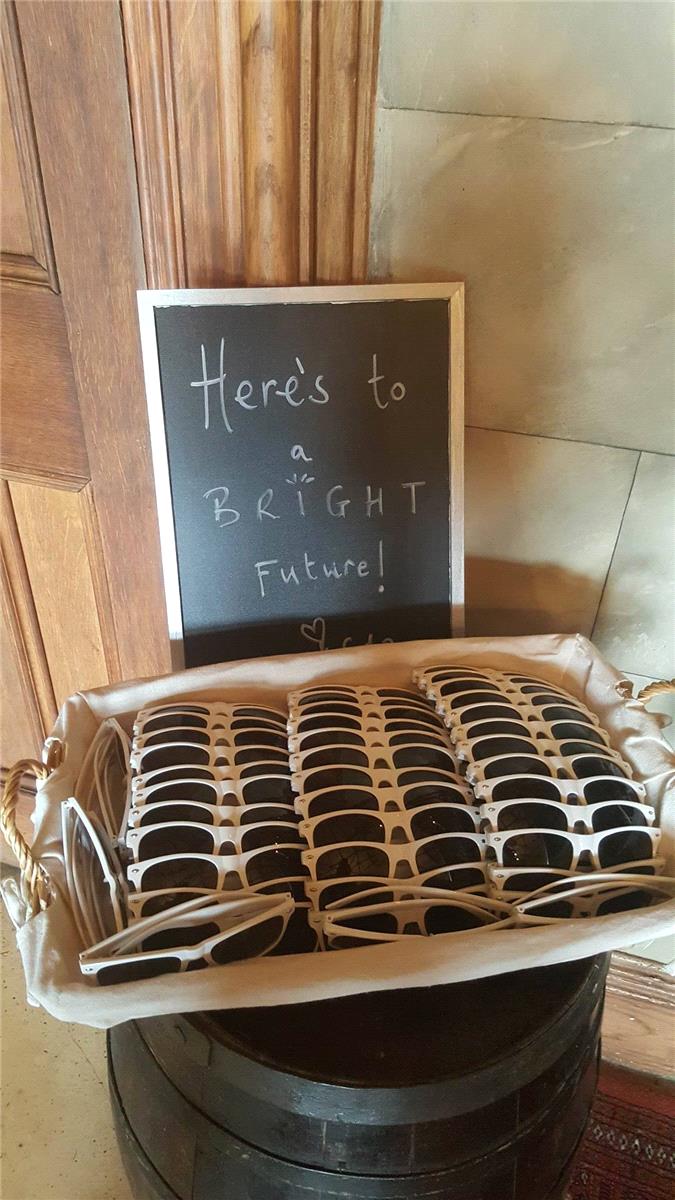 Here's to
a
BRIGHT
Future!